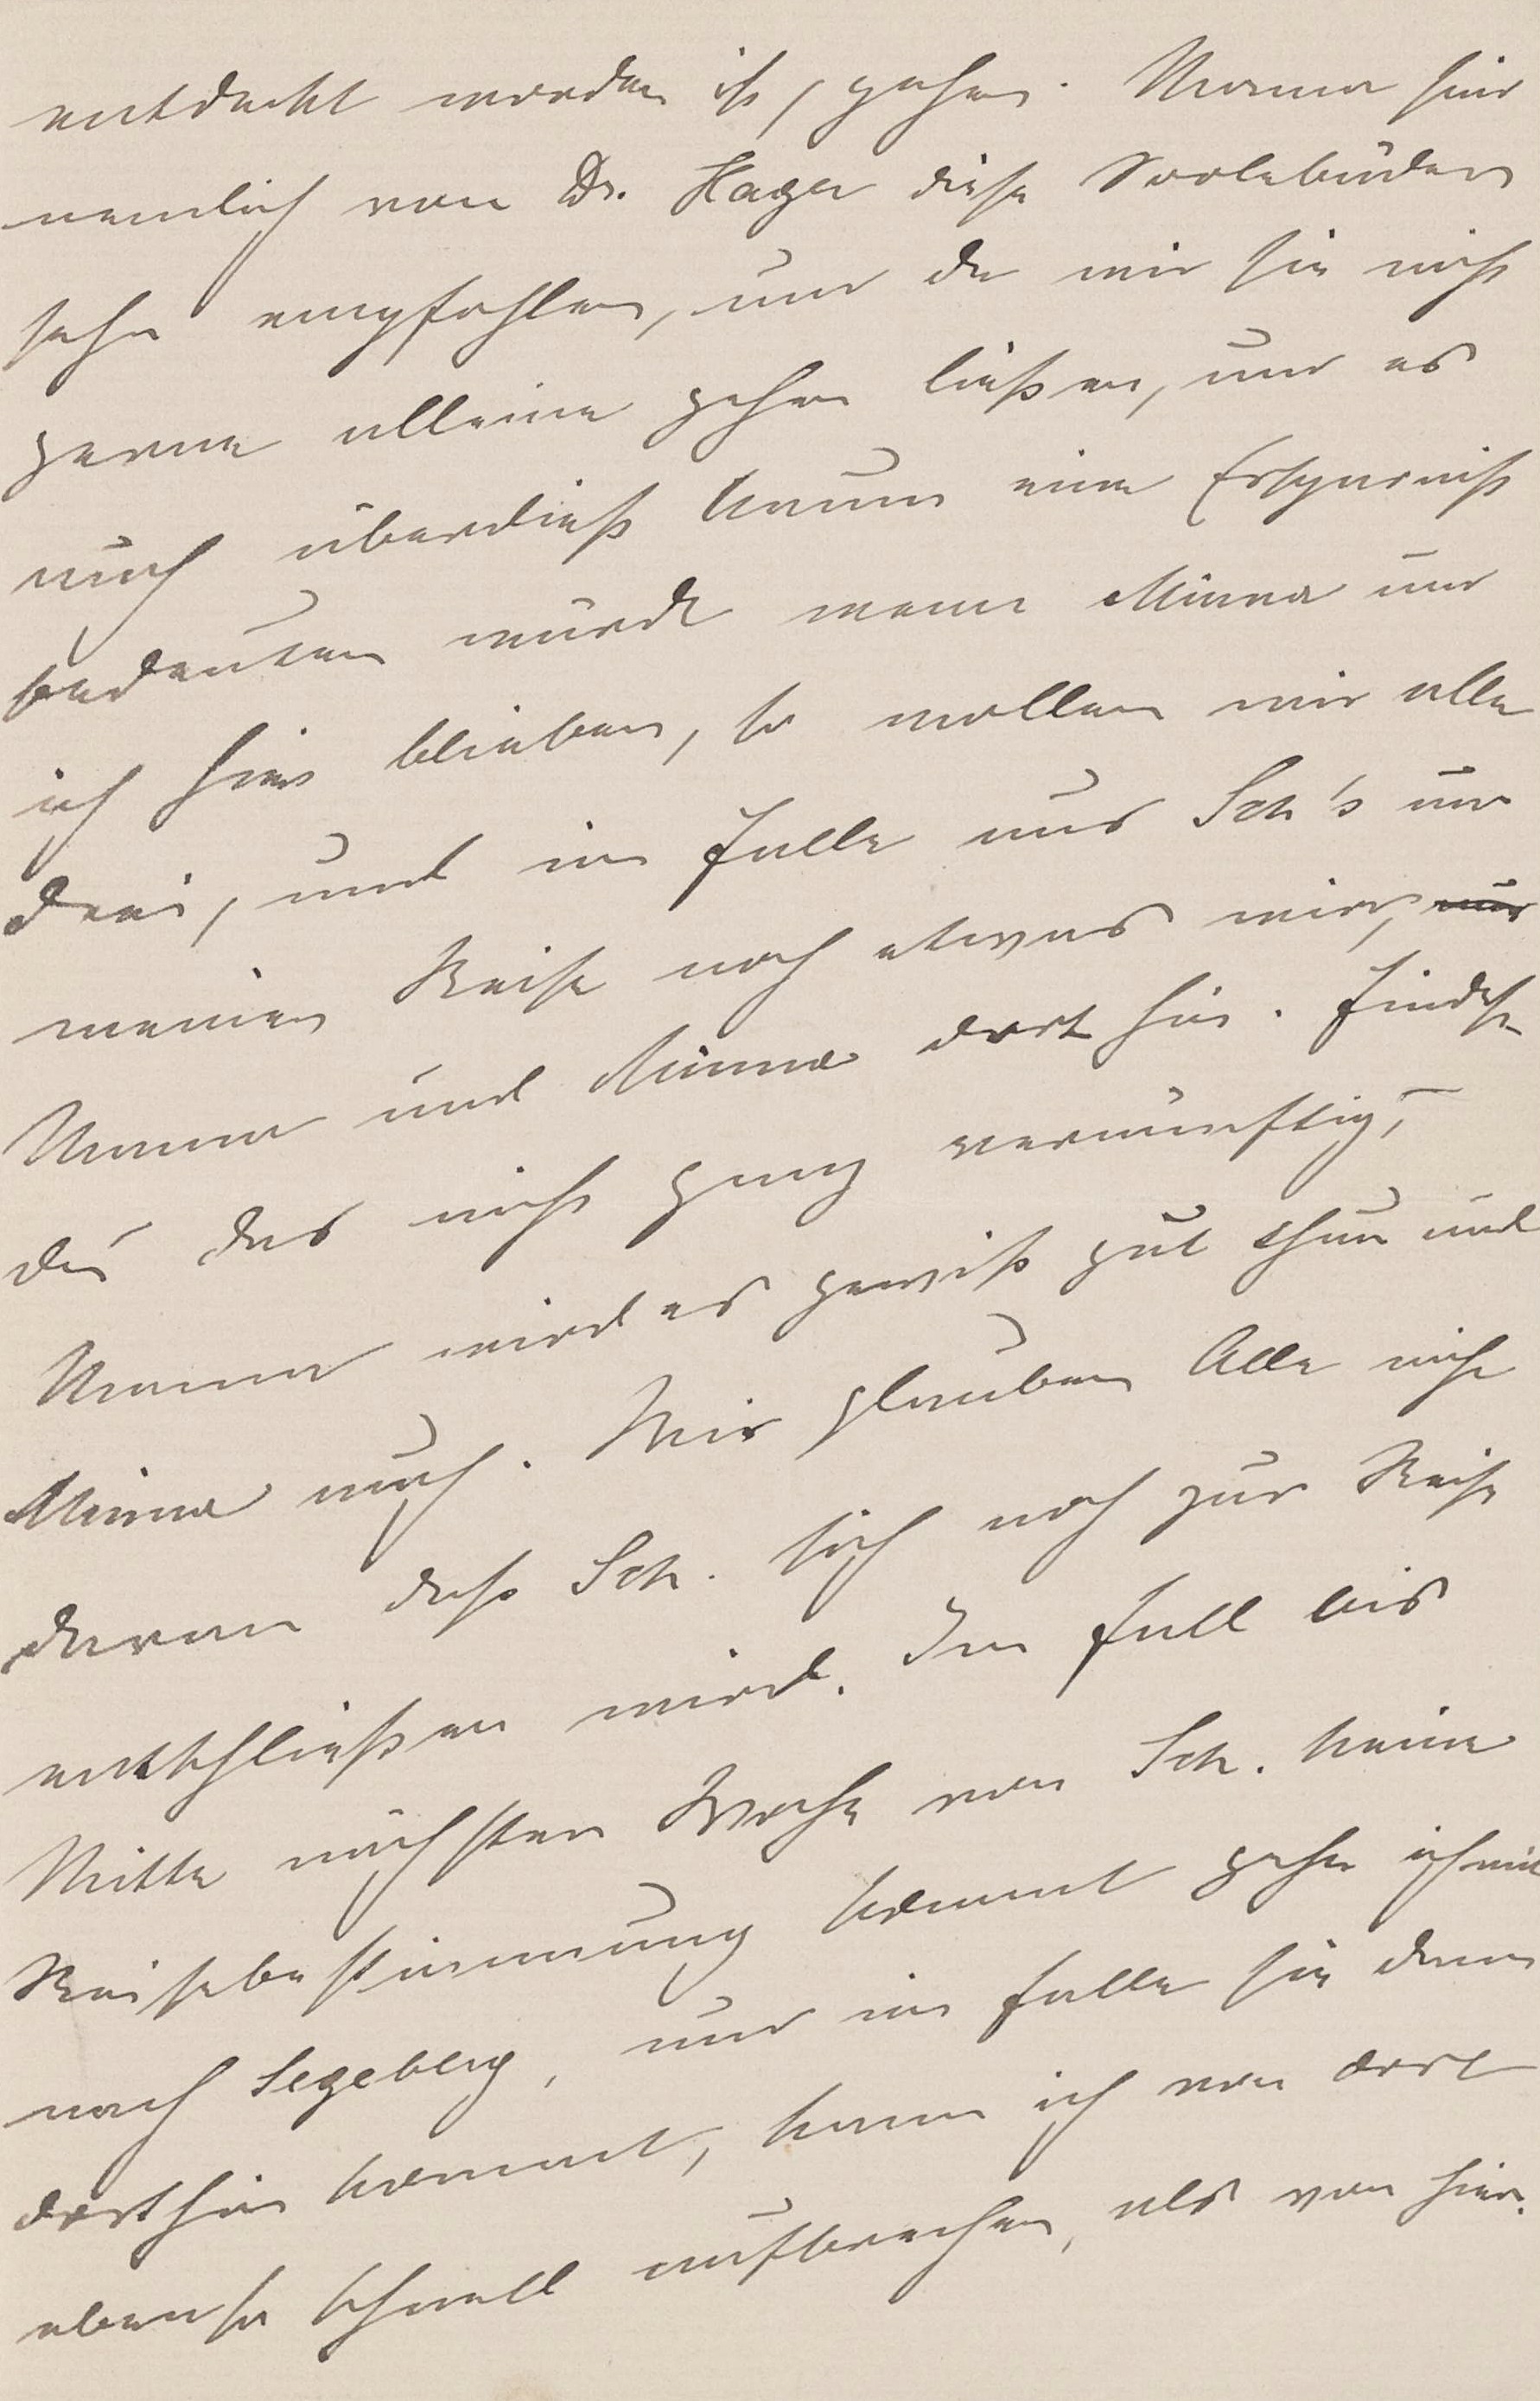 entdeckt worden ist, gehen. Mama sind
nemlich von Dr. Hager diese Soolebäder
sehr empfohlen, und da wir sie nicht
gerne alleine gehen ließen, und es
auch überdieß kaum eine Ersparniß
bedeuten würde wenn Minna und
ich hier blieben, so wollen wir alle
drei, und im Falle aus Sch's und
meiner Reise noch etwas wird,
Mama und Minna dort hin. Findest
du das nicht ganz vernünftig,
Mama wird es gewiß gut thun und
Minna auch. Wir glauben Alle nicht
daran daß Sch. sich noch zur Reise
entschließen wird. Im Fall bis
Mitte nächster Woche von Sch. keine
Reisebestimmung kommt gehe ich mit
nach Segeberg, und im Falle sie dann
dorthin kommt, kann ich von dort
ebenso schnell aufbrechen, als von hier.